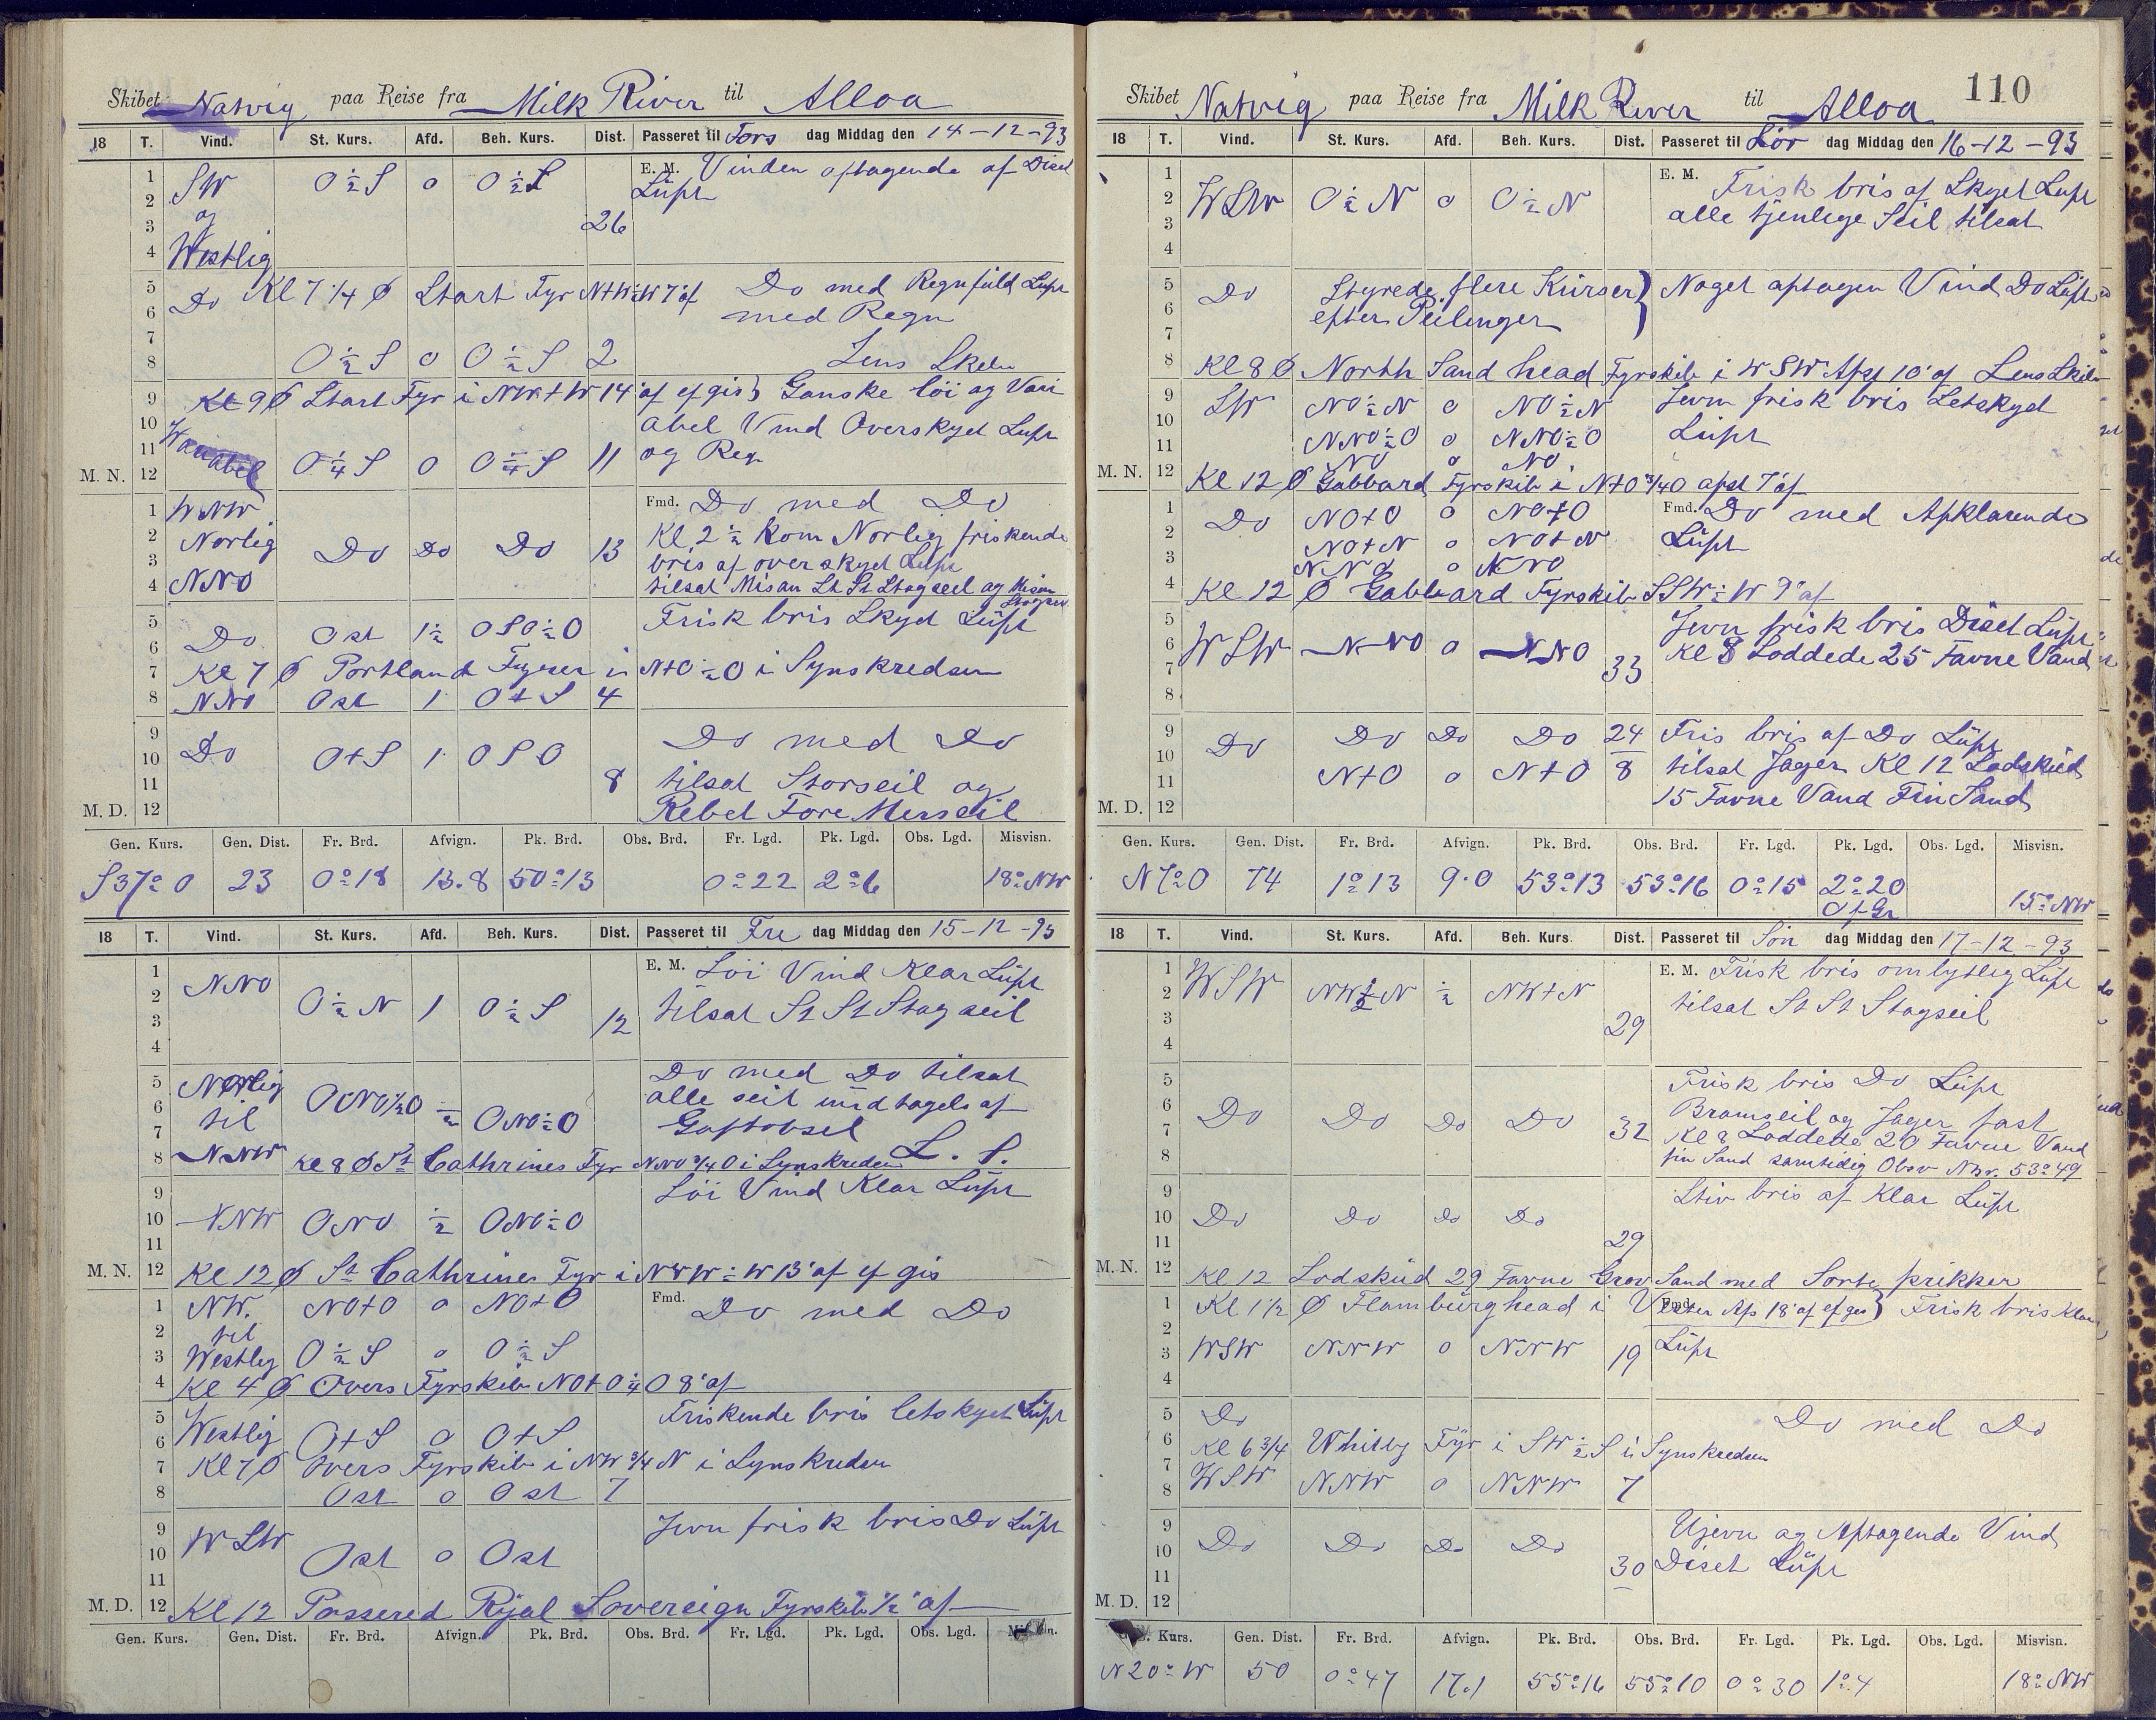 Skibet Natvig paa Reise fra Milk River til Alloa
18 T. Vind. St. Kurs. Afd. Beh. Kurs. Dist. Passeret til Tors dag Middag den 14-12-93
1 2 3 4 SW og Westlig O ½ S o O ½ S 26 E. M. Vinden aftagende af Diset
Luft
5 6 Do Kl 7 1/4 Ø Start Fyr N+W½W 7' af Do med Regnfuld Luft
med Regn
7 8 O ½ S o O ½ S 2 Lens Skibe
9 Kl 9 Ø Start Fyr i NW+W 14' af ef gis } Ganske löi og Vari
10 abel Vind Overskyet Luft
11 M. N. 12 Variabel O ¼ S o O ¼ S 11 og Regn
1 WNW Fmd. Do med Do
2 Norlig Do Do Do 13 Kl 2 ½ kom Norlig friskende
3 bris af overskyet Luft
4 NNO tilsat Misan St St Stagseil og Misan
Stagseil
5 6 Do Ost 1½ OSO½O Frisk bris Skyet Luft
7 Kl 7 Ø Portland Fyrer i N+O½O i Synskredsen
8 NNO Ost 1 O+S 4
9 10 Do O+S 1 OSO Do med Do
11 8 tilsat Storseil og
M. D. 12 Rebet Fore Merseil
Gen. Kurs. Gen. Dist. Fr. Brd. Afvign. Pk. Brd. Obs. Brd. Fr. Lgd. Pk. Lgd. Obs. Lgd. Misvisn.
S 37° O 23 0°18 13.8 50°13 0°22 2°6 18° NW
18 T. Vind. St. Kurs. Afd. Beh. Kurs. Dist. Passeret til Fre dag Middag den 15-12-93
1 NNO E. M. Löi Vind Klar Luft
2 3 4 O ½ N 1 O ½ S 12 tilsat St St Stagseil
5 Norlig Do med Do tilsat
6 til ONO½O ½ ONO½O alle seil undtagels af
7 Gaftobsel
8 NNW Kl 8 Ø St Cathrines Fyr NNO¾O i Synskredsen L. S.
9 Löi Vind Klar Luft
10 11 NNW ONO ½ ONO½O
M. N. 12 Kl 12 Ø St Cathrines Fyr i NWW½W 13' af ef gis
1 NW. NO+O o NO+O Fmd. Do med Do
2 til
3 Westlig O ½ S o O ½ S
4 Kl 4 Ø Overs Fyrskib NO+O¼O 8' af
5 Westlig Friskende bris letskyet Luft
6 O+S o O+S
7 Kl 7 Ø Overs Fyrskib i NW ¾ N i Synskredsen
8 Ost o Ost 7
9 WSW Jevn frisk bris Do Luft
10 11 Ost o Ost
M. D. 12 Kl 12 Passered Rÿal Sovereign Fyrskib ½' af
Gen. Kurs. Gen. Dist. Fr. Brd. Afvign. Pk. Brd. Obs. Brd. Fr. Lgd. Pk. Lgd. Obs. Lgd.
110
Skibet Natvig paa Reise fra Milk River til Alloa
18 T. Vind. St. Kurs. Afd. Beh. Kurs. Dist. Passeret til Lör dag Middag den 16-12-93
1 2 WSW O ½ N o O ½ N E. M. Frisk bris af Skyet Luft
3 4 alle tjenlige Seil tilsat
5 Do Styrede flere Kurser } Noget aftagen Vind Do Luft
6 7 efter Peilinger
8 Kl 8 Ø North Sand head Fyrskib i WSW Afst 10' af Lens Skibe
9 SW NO½N o NO½N Jevn frisk bris Letskyet
10 11 NNO½O o NNO½O Luft
NO o NO
M. N. 12 Kl 12 Ø Gabbard Fyrskib i N+O¾O afst 7' af
1 Do NO+O o NO+O Fmd. Do med Afklarende
2 NO+N o NO+N Luft
3 NNO o NNO
4 Kl 12 Ø Gabbard Fyrskib SSW½W 9' af
5 Jevn frisk bris Diset Luft
6 7 8 WSW NNO o NNO 33 Kl 8 Loddede 25 Favne Vand
9 Do Do Do Do 24 Fris bris af Do Luft
10 11 N+O o N+O 8 tilsat Jager Kl 12 Lodskud
M. D. 12 15 Favne Vand Fin Sand
Gen. Kurs. Gen. Dist. Fr. Brd. Afvign. Pk. Brd. Obs. Brd. Fr. Lgd. Pk. Lgd. Obs. Lgd. Misvisn.
N 7° O 74 1°13 9.0 53°13 53°16 0°15 2°20 15° NW
Of Gr
18 T. Vind. St. Kurs. Afd. Beh. Kurs. Dist. Passeret til Sön dag Middag den 17-12-93
1 E. M. Frisk bris ombytlig Luft
2 WSW NW½N ½ NW+N tilsat St St Stagseil
3 4 29
5 Frisk bris Do Luft
6 Do Do Do Do Bramseil og Jager fast
7 32 Kl 8 Loddede 20 Favne Vand
8 fin Sand samtidig Obsv Nbr. 53°49
9 Stiv bris af Klar Luft
10 Do Do Do Do
11 29
M. N. 12 Kl 12 Lodskud 29 Favne Grov Sand med Sorte prikker
1 Kl 1½ Ø Flamburghead i Vester Afs 18' af ef gis } Fmd. Frisk bris Klar
2 3 4 WSW NNW o NNW 19 Luft
5 Do Do med Do
6 Kl 6 3/4 Whitby Fÿr i SW½S i Synskredsen
7 8 WSW NNW o NNW 7
9 Ujevn og Aftagende Vind
10 Do Do Do Do
11 30 Diset Luft
M. D. 12
Kurs. Gen. Dist. Fr. Brd. Afvign. Pk. Brd. Obs. Brd. Fr. Lgd. Pk. Lgd. Obs. Lgd. Misvisn.
N 20° W 50 0°47 17.1 55°16 55°10 0°30 1°4 18° NW